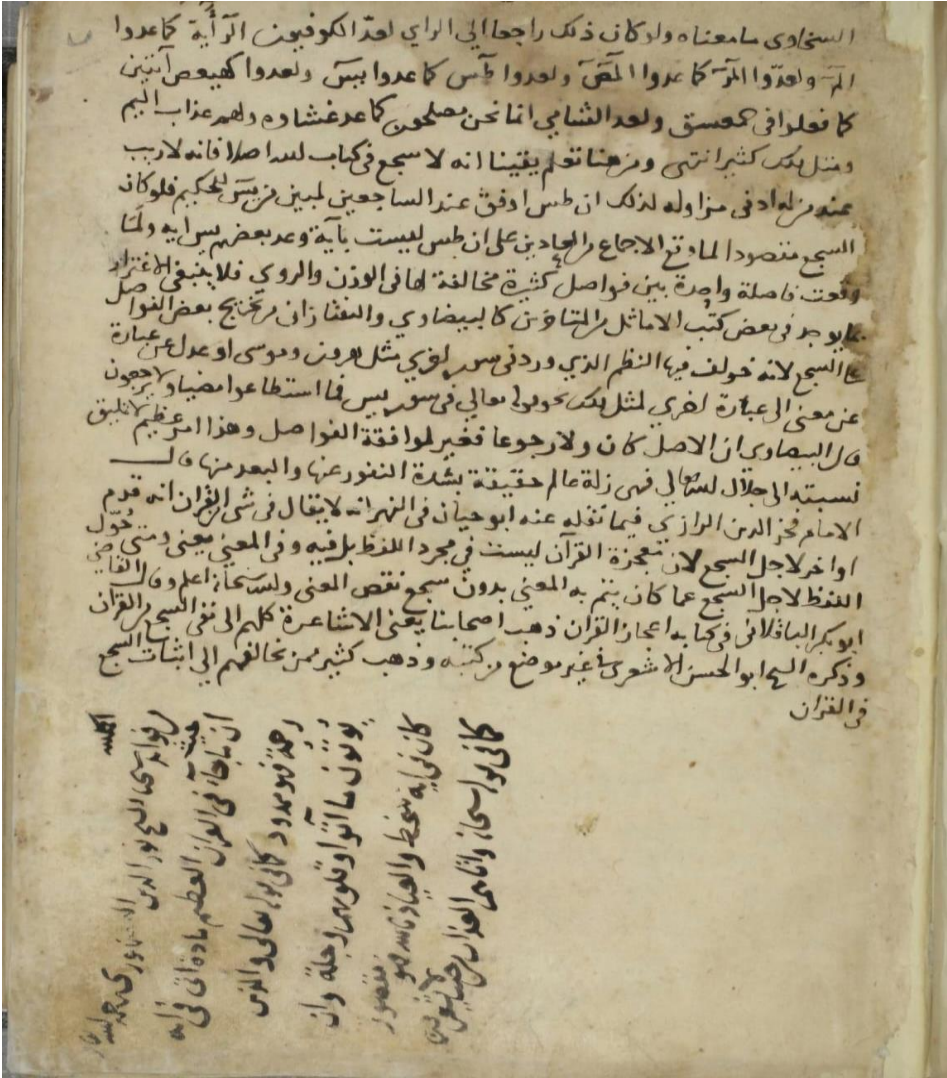 السخاوي ما معناه ولو كان ذلك راجعا الى الراي لعدّ الكوفيون الر آية كما عدوا
الم ولعدّوا المر كما عدوا المص ولعدوا طس كما عدوا يس ولعدوا كهيعص آيتين
كما فعلوا في حمعسق ولعد الشامي انما نحن مصلحون كما عد غشاوه ولهم عذاب اليم
ومثل ذلك كثير انتهى ومن هنا تعلم يقينا انه لا سجع في كتاب الله اصلا فانه لا ريب
عند من له ادنى مزاولة لذلك ان طس اوفق عند الساجعين لمبين من يس للحكيم فلو كان
السجع مقصودا لما وقع الاجماع من العادين على ان طس ليست بآية وعد بعضهم يس ايه ولما
وقعت فاصلة واحدة بين فواصل كثيرة مخالفة لها في الوزن والروي فلا ينبغي الاغترار
بما يوجد في بعض كتب الاماثل من المتاخرين كالبيضاوي والتفتازاني من تخريج بعض الفواصل
على السجع لانه خولف فيها النظم الذي ورد في سور اخري مثل هرون وموسى او عدل عن عبارة
عن معنى الى عبارة اخري لمثل ذلك نحو قوله تعالي في سورة يس فما استطاعوا مضيا ولا يرجعون
قال البيضاوي ان الاصل كان ولا رجوعا فغير لموافقة الفواصل وهذا امر عظيم لا تليق
نسبته الى جلال الله تعالي فهي زلة عالم حقيقة بشدة النفور عنها والبعد منها قال
الامام فخر الدين الرازي فيما نقله عنه ابو حيان في النهر انه لا يقال في شى من القران انه قدم
او اخر لاجل السجع لان معجزة القرآن ليست في مجرد اللفظ بل فيه وفي المعنى ومتى حُوّل
اللفظ لاجل السجع عما كان يتم به المعني بدون سجع نقص المعنى والله سبحانه اعلم وقال القاضي
ابو بكر الباقلاني في كتابه اعجاز القران ذهب اصحابنا يعني الاشاعرة كلهم الى نفى السجع من القران
وذكره الشيخ ابو الحسن الاشعري في غير موضع من كتبه وذهب كثير ممن نخالفهم الي اثبات السجع
في القران
من فوائد شيخنا الشيخ نور الدين رحمه الله
ان ما جاء في القران العظيم مادة اتى في
رحمة فهو ممدود كما في قوله تعالى والذين
يؤتون ما آتوا وقلوبهم وجلة وان
كان في سخط والعياذ بالله فهو مقصور
كما في قوله سبحانه واتاهم العذاب من حيث لا يشعرون